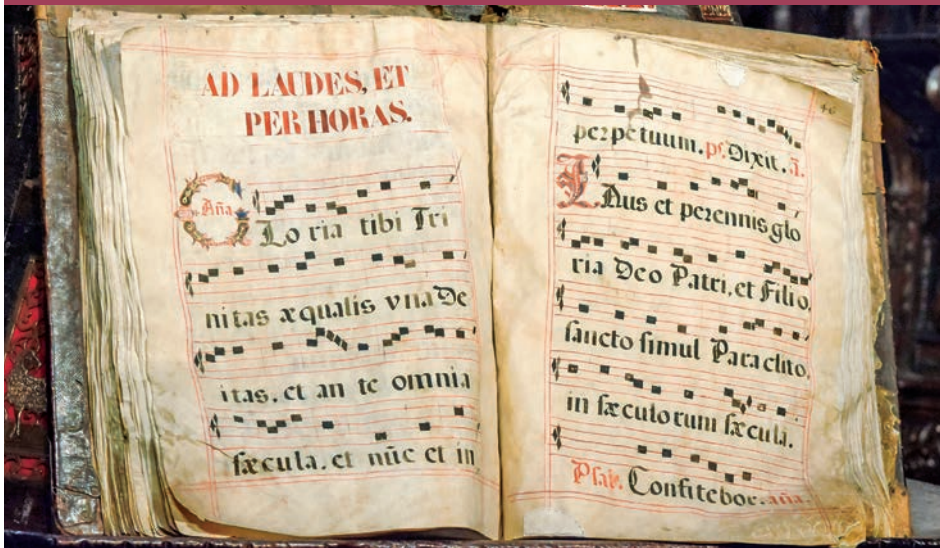 AD LAUDES, ET
PER HORAS.
Aña
GLo ria tibi Tri
nitas æqualis vna De
itas, et an te omnia
sæcula, et nũc et in
46
perpetuum. ps. Dixit. ã.
LAus et perennis glo
ria Deo Patri, et Filio,
sancto simul Paraclito,
in sæculorum sæcula.
Psal. Confitebor. aña.